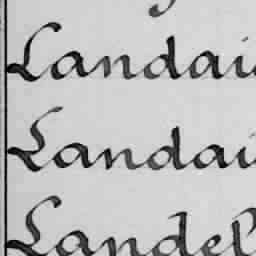 Landai
Landai
Landel